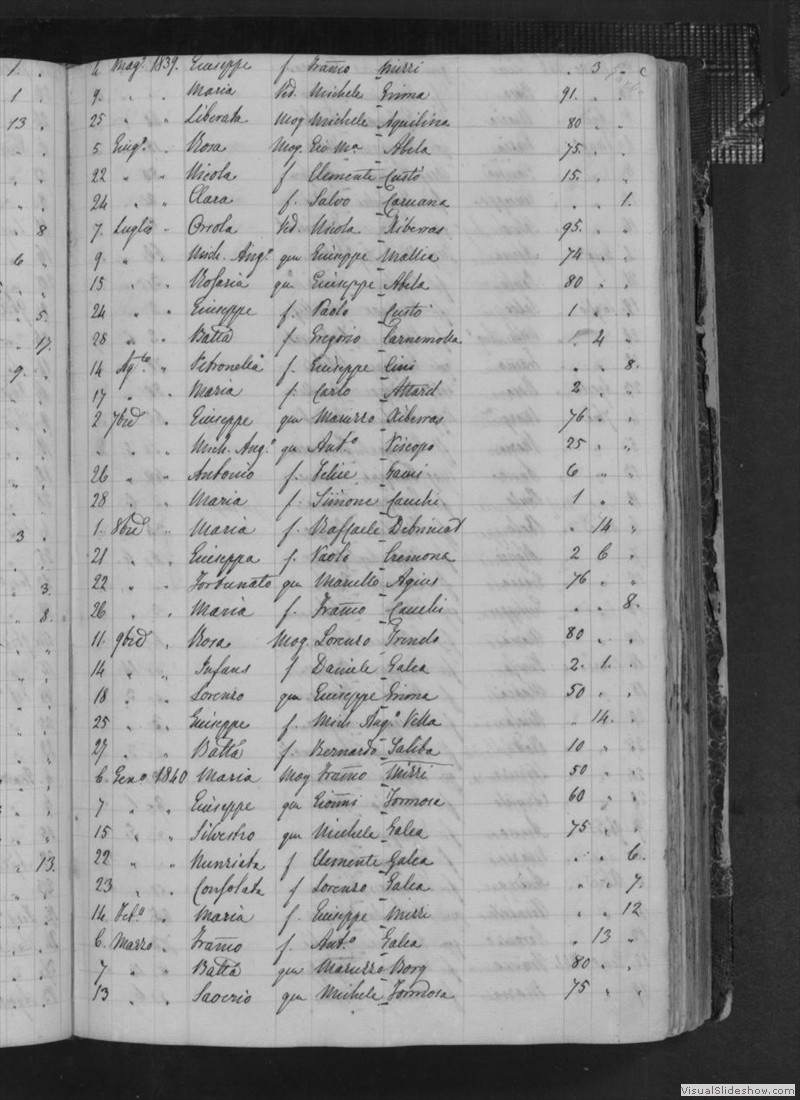 1. . 6 Mag.º 1839. Giuseppe f. Franco Mizzi . 3 . c
1 . 9. . . Maria Ved. Michele Grima 91. . .
13 . 25 " " Liberata Mog Michele Aquilina 80 . .
. . 5 Giugº. . Rosa Mog. Gio Mª Abela 75. . .
. . 22 . . Nicola f Clemente Custó 15. . .
. . 24 . . Clara f. Salvo Caruana . . 1.
. 8 7. Luglio . Orsola Ved. Nicola Xiberras 95. . .
6 . 9 " . Mich. Angº qm Giuseppe Mallia 74 . .
. . 15 . . Rosaria qm Giuseppe Abela 80 . .
. 5. 24 . . Giuseppe f. Paolo Custó 1 . .
. 17. 28 " . Batta f Gregorio Carnemolla . 4 .
9. . 14 Agto . Petronella f. Giuseppe Cini . . 8.
17 . . Maria f. Carlo Attard 2 . .
2 7bre . Giuseppe qm Maruzzo Xiberras 76 . .
. . . Mich. Angº qm Antº Piscopo 25 . .
26 . . Antonio f. Felice Gauci 6 " .
28 . . Maria f. Simone Cauchi 1 . .
3 . 1. 8bre " Maria f. Raffaele Debrincat . 14 .
21 . . Giuseppa f. Paolo Cremona 2 6 .
. 3. 22 . . Fortunato qm Marcello Agius 76 . .
. 8. 26 . . Maria f. Franco Cauchi . . 8.
11. 9bre . Rosa Mog. Lorenzo 80 . .
14 . . Infans f Daniele Galea 2. 1. .
18 . . Lorenzo qm Giuseppe Grima 50 . .
25 . . Giuseppe f. Mich Angº Vella " 14. .
27 . . Batta f. Bernardo Saliba 10 . .
6. Genº 1840 Maria Mog Franco Mizzi 50 . .
7 . . Giuseppe qm Gionni Formosa 60 . .
15 " " Silvestro qm Michele Galea 75 . .
. 13. 22 " " Nunziata f Clemente Galea . . 6.
23 . . Consolata f Lorenzo Galea . . 7.
14. Febº . Maria f. Giuseppe Mizzi . . 12
6. Marzo . Franco f. Antº Galea . 13 .
7 . . Batta qm Maruzzo Borg 80 . .
13 . . Saverio qm Michele Formosa 75 . .
VisualSlideshow.com